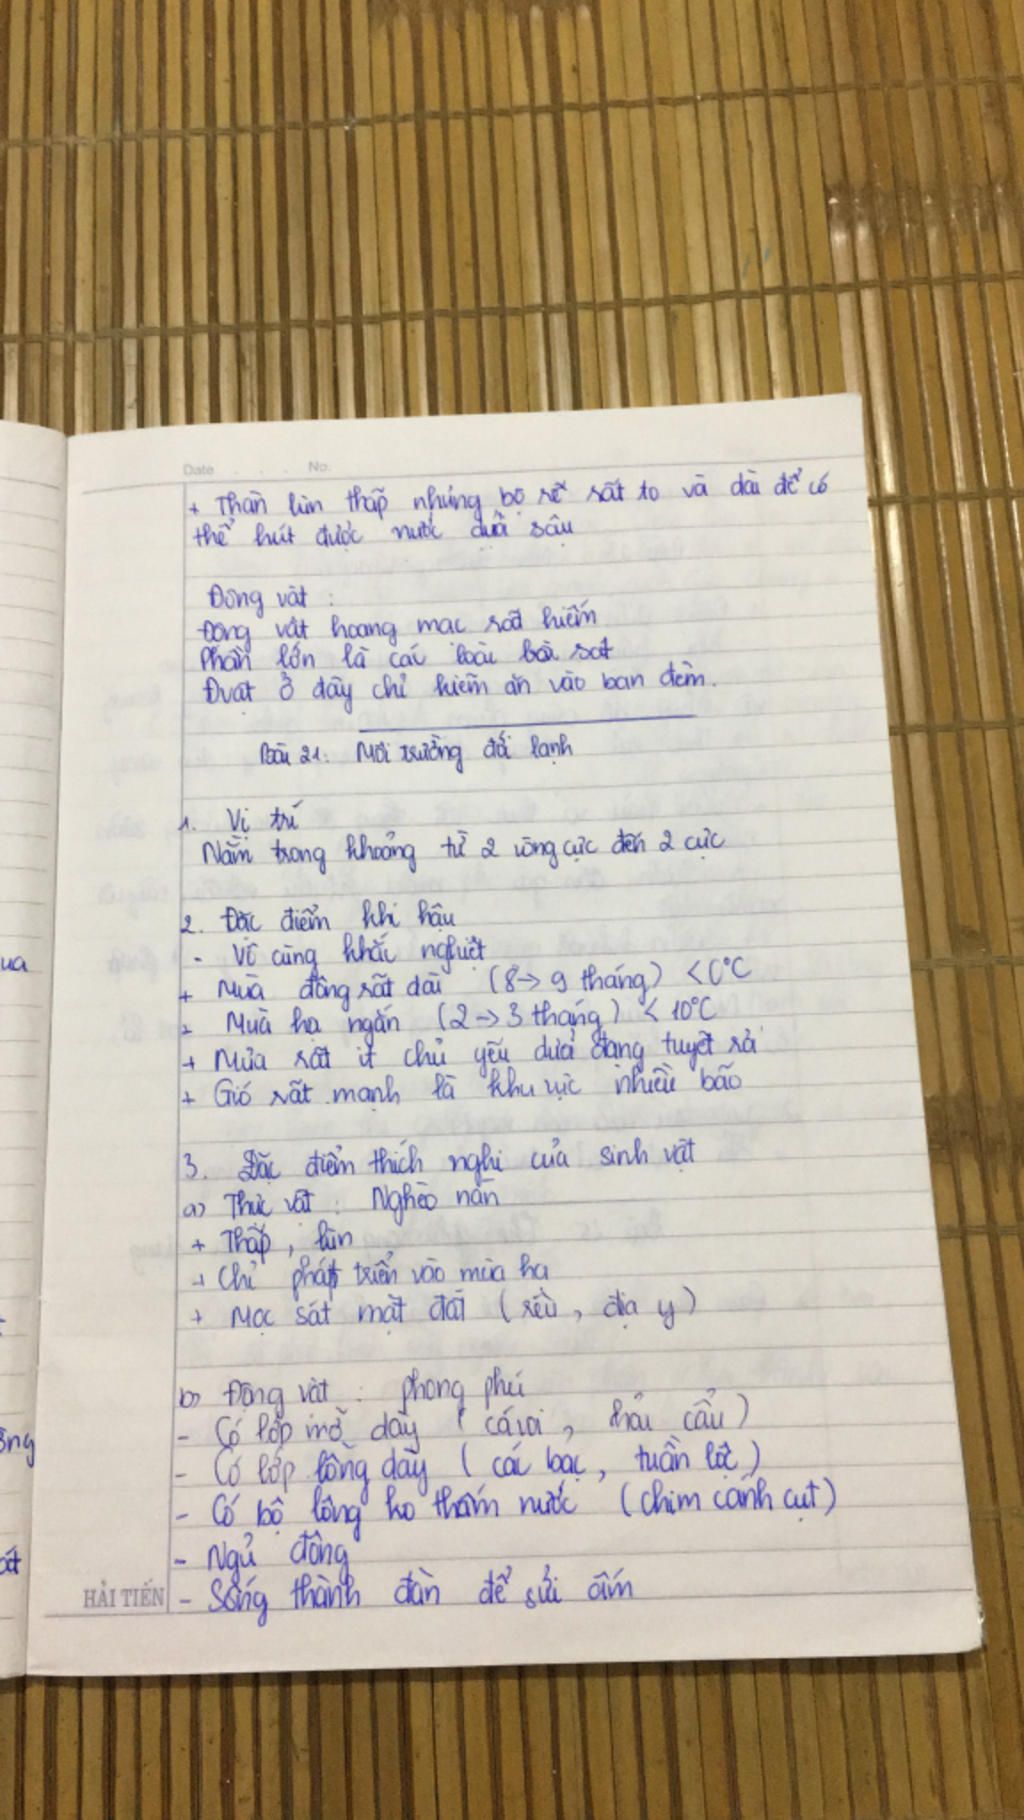 Date . . . No.
+ Thân lùn thấp nhưng bộ rễ rất to và dài để có
thể hút được nước dưới sâu
Động vật :
Động vật hoang mạc rất hiếm
Phần lớn là các loài bò sát
Đvật ở đây chỉ kiếm ăn vào ban đêm.
Bài 21: Môi trường đới lạnh
1. Vị trí
Nằm trong khoảng từ 2 vòng cực đến 2 cực
2. Đặc điểm khí hậu
- Vô cùng khắc nghiệt
+ Mùa đông rất dài (8 -> 9 tháng) < 0°C
+ Mùa hạ ngắn (2 -> 3 tháng) < 10°C
+ Mưa rất ít chủ yếu dưới dạng tuyết rơi
+ Gió rất mạnh là khu vực nhiều bão
3. Đặc điểm thích nghi của sinh vật
a) Thực vật : Nghèo nàn
+ Thấp, lùn
+ Chỉ phát triển vào mùa hạ
+ Mọc sát mặt đất (rêu, địa y)
b) Động vật : phong phú
- Có lớp mỡ dày ( cá voi, hải cẩu)
- Có lớp lông dày ( cáo bạc, tuần lộc)
- Có bộ lông ko thấm nước (chim cánh cụt)
- Ngủ đông
- Sống thành đàn để sưởi ấm
HẢI TIẾN